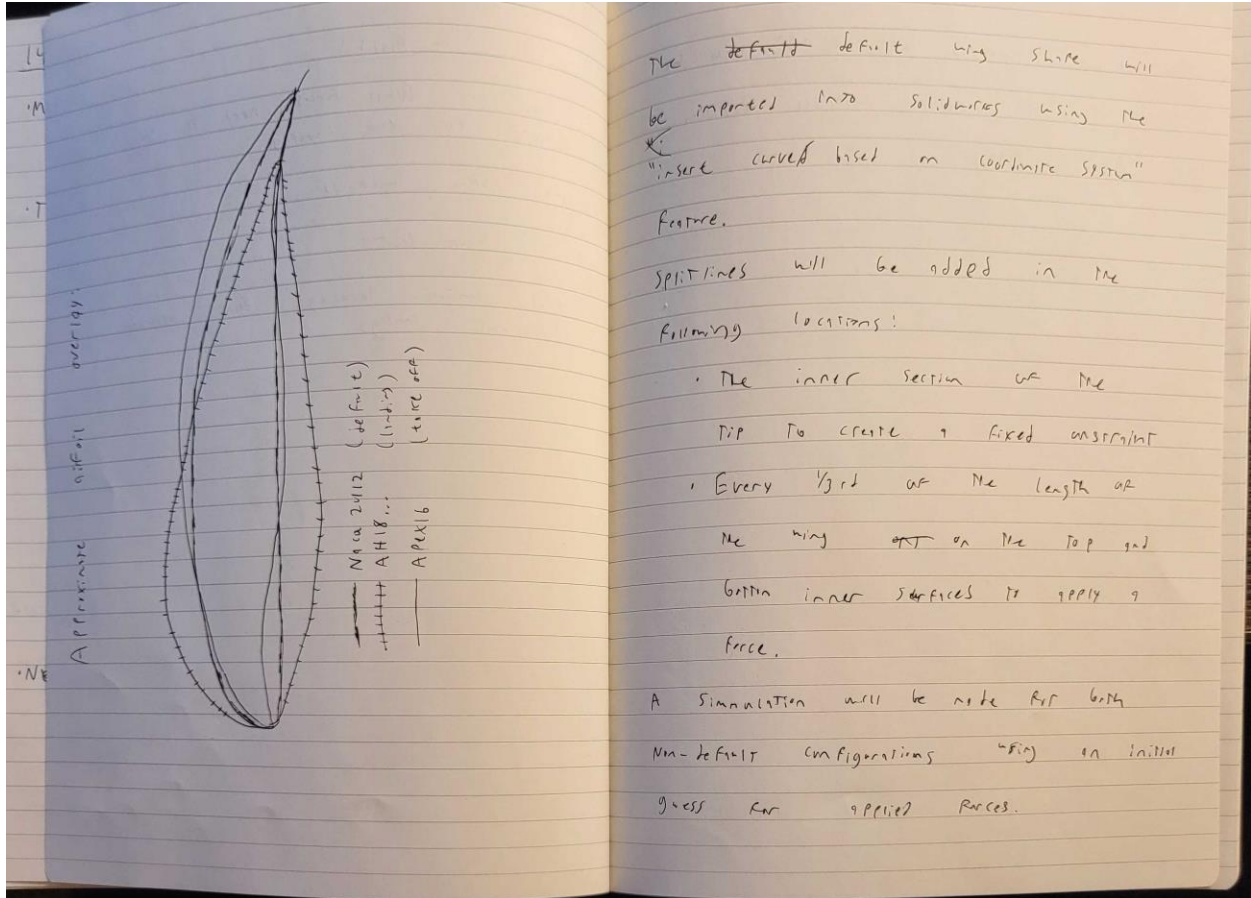 14
·M
·T
Approximate airfoil overlay:
Naca 2412 (default)
AH18... (landing)
Apex16 (take off)
The default default wing shape will
be imported into Solidworks using the
"insert curved based on coordinate system"
feature.
Split lines will be added in the
following locations:
· The inner section of the
tip to create a fixed constraint
· Every 1/3rd of the length of
the wing on the top and
bottom inner surfaces to apply a
force.
A simmulation will be made for both
Non-default configurations using an initial
guess for applied forces.